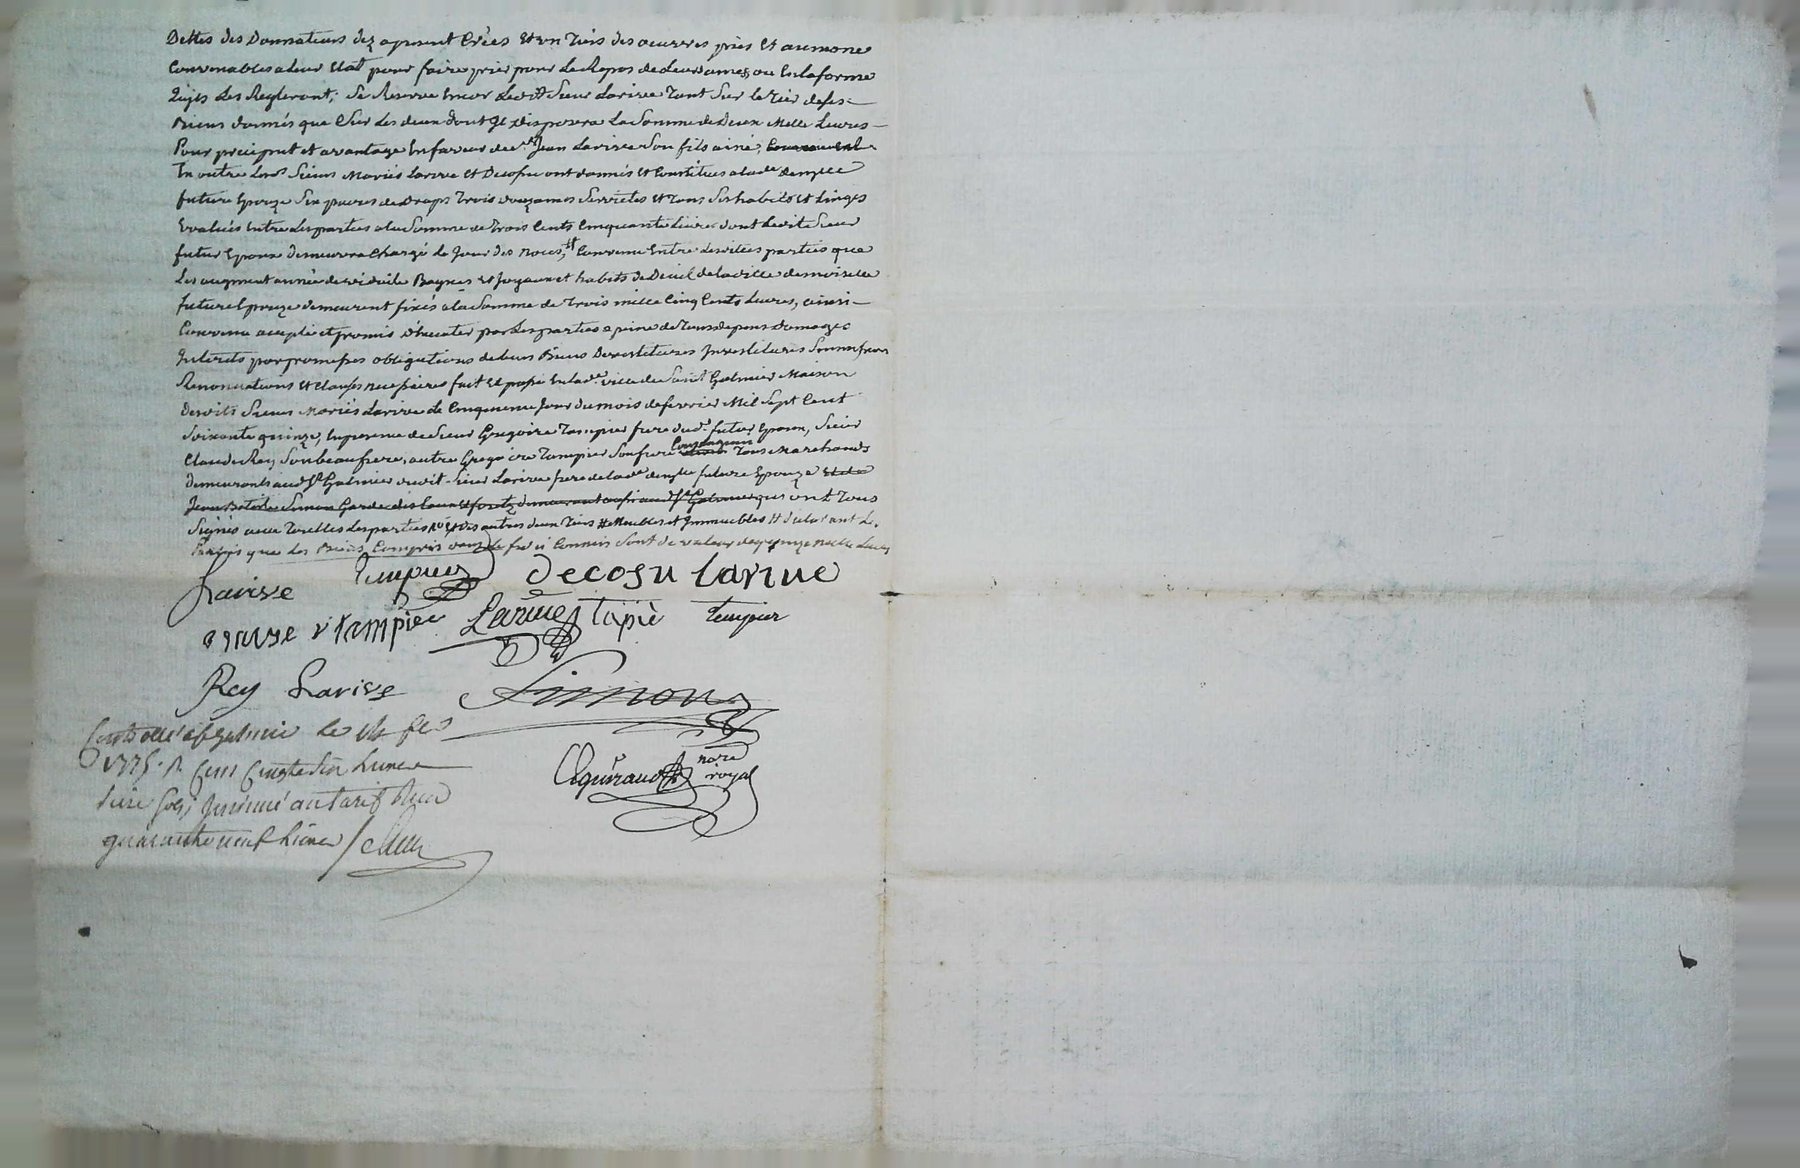 Dettes des Donnateurs dez apresent Créés et un tiers des oeuvres pies et aumone
Convenables a leur Etat pour faire prier pour le Repos de leurs ames, ou En la forme
quils les Regleront; Se Reserve Encor ledit Sieur Larive tant Sur le tier de ses
Biens donnés que Sur les deux dont Il disposera la Somme de Deux Mille Livres
Pour preciput et avantage En faveur de Sr Jean Larive Son fils ainé,
En outre lesds Sieurs Mariés Larive et Decosu ont donnés et Constitués a lade demlle
future Epouze Six paires de Draps trois douzaines Serviettes et tous Ses habits et Linges
Evalués Entre les parties a la Somme de trois Cents Cinquante Livres dont ledit Sieur
futur Epoux demeurera Chargé le Jour des noces, # Convenu Entre lesdites parties que
les augment année de viduité Bagues et Joyaux et habits de Deuil de ladite demoiselle
future Epouze demeurent fixés a la Somme de trois mille Cinq Cents Livres, ainsi
Convenu accepté et promis d'Executer par les parties a peine de tous depens domages
Interets par promesses obligations de leurs Biens Devestitures Investitures
Renonciations et Clauses necessaires fait et passé En lade ville de Saint Galmier Maison
desdits Sieurs Mariés Larive le Cinquieme Jour du mois de fevrier Mil Sept Cent
Soixante quinze, En presence de Sieur Gregoire Tampier frere dudt futur Epoux, Sieur
Claude Rey Son beaufrere, autre Gregoire Tampier Son frere Consanguin tous Marchands
demeurants audt St Galmier dudit Sieur Larive frere de lade demlle future Epouze et de
Jean Batiste Simon Garde des Eaux et forets demeurant aussi audt St Galmier qui ont tous
Signés avec toutes les parties # et des autres deux tiers # Meubles et Immeubles # declarant les
Parties que les Biens Compris dans le Sus Commis Sont de valeur de quinze Mille Livres
Larive Tampier decosu larive
Larive tapié tempier
Rey Larive Simon
Controllé a St Galmier le
1775. R
Sols,
quarante neuf Livres
nore
royal